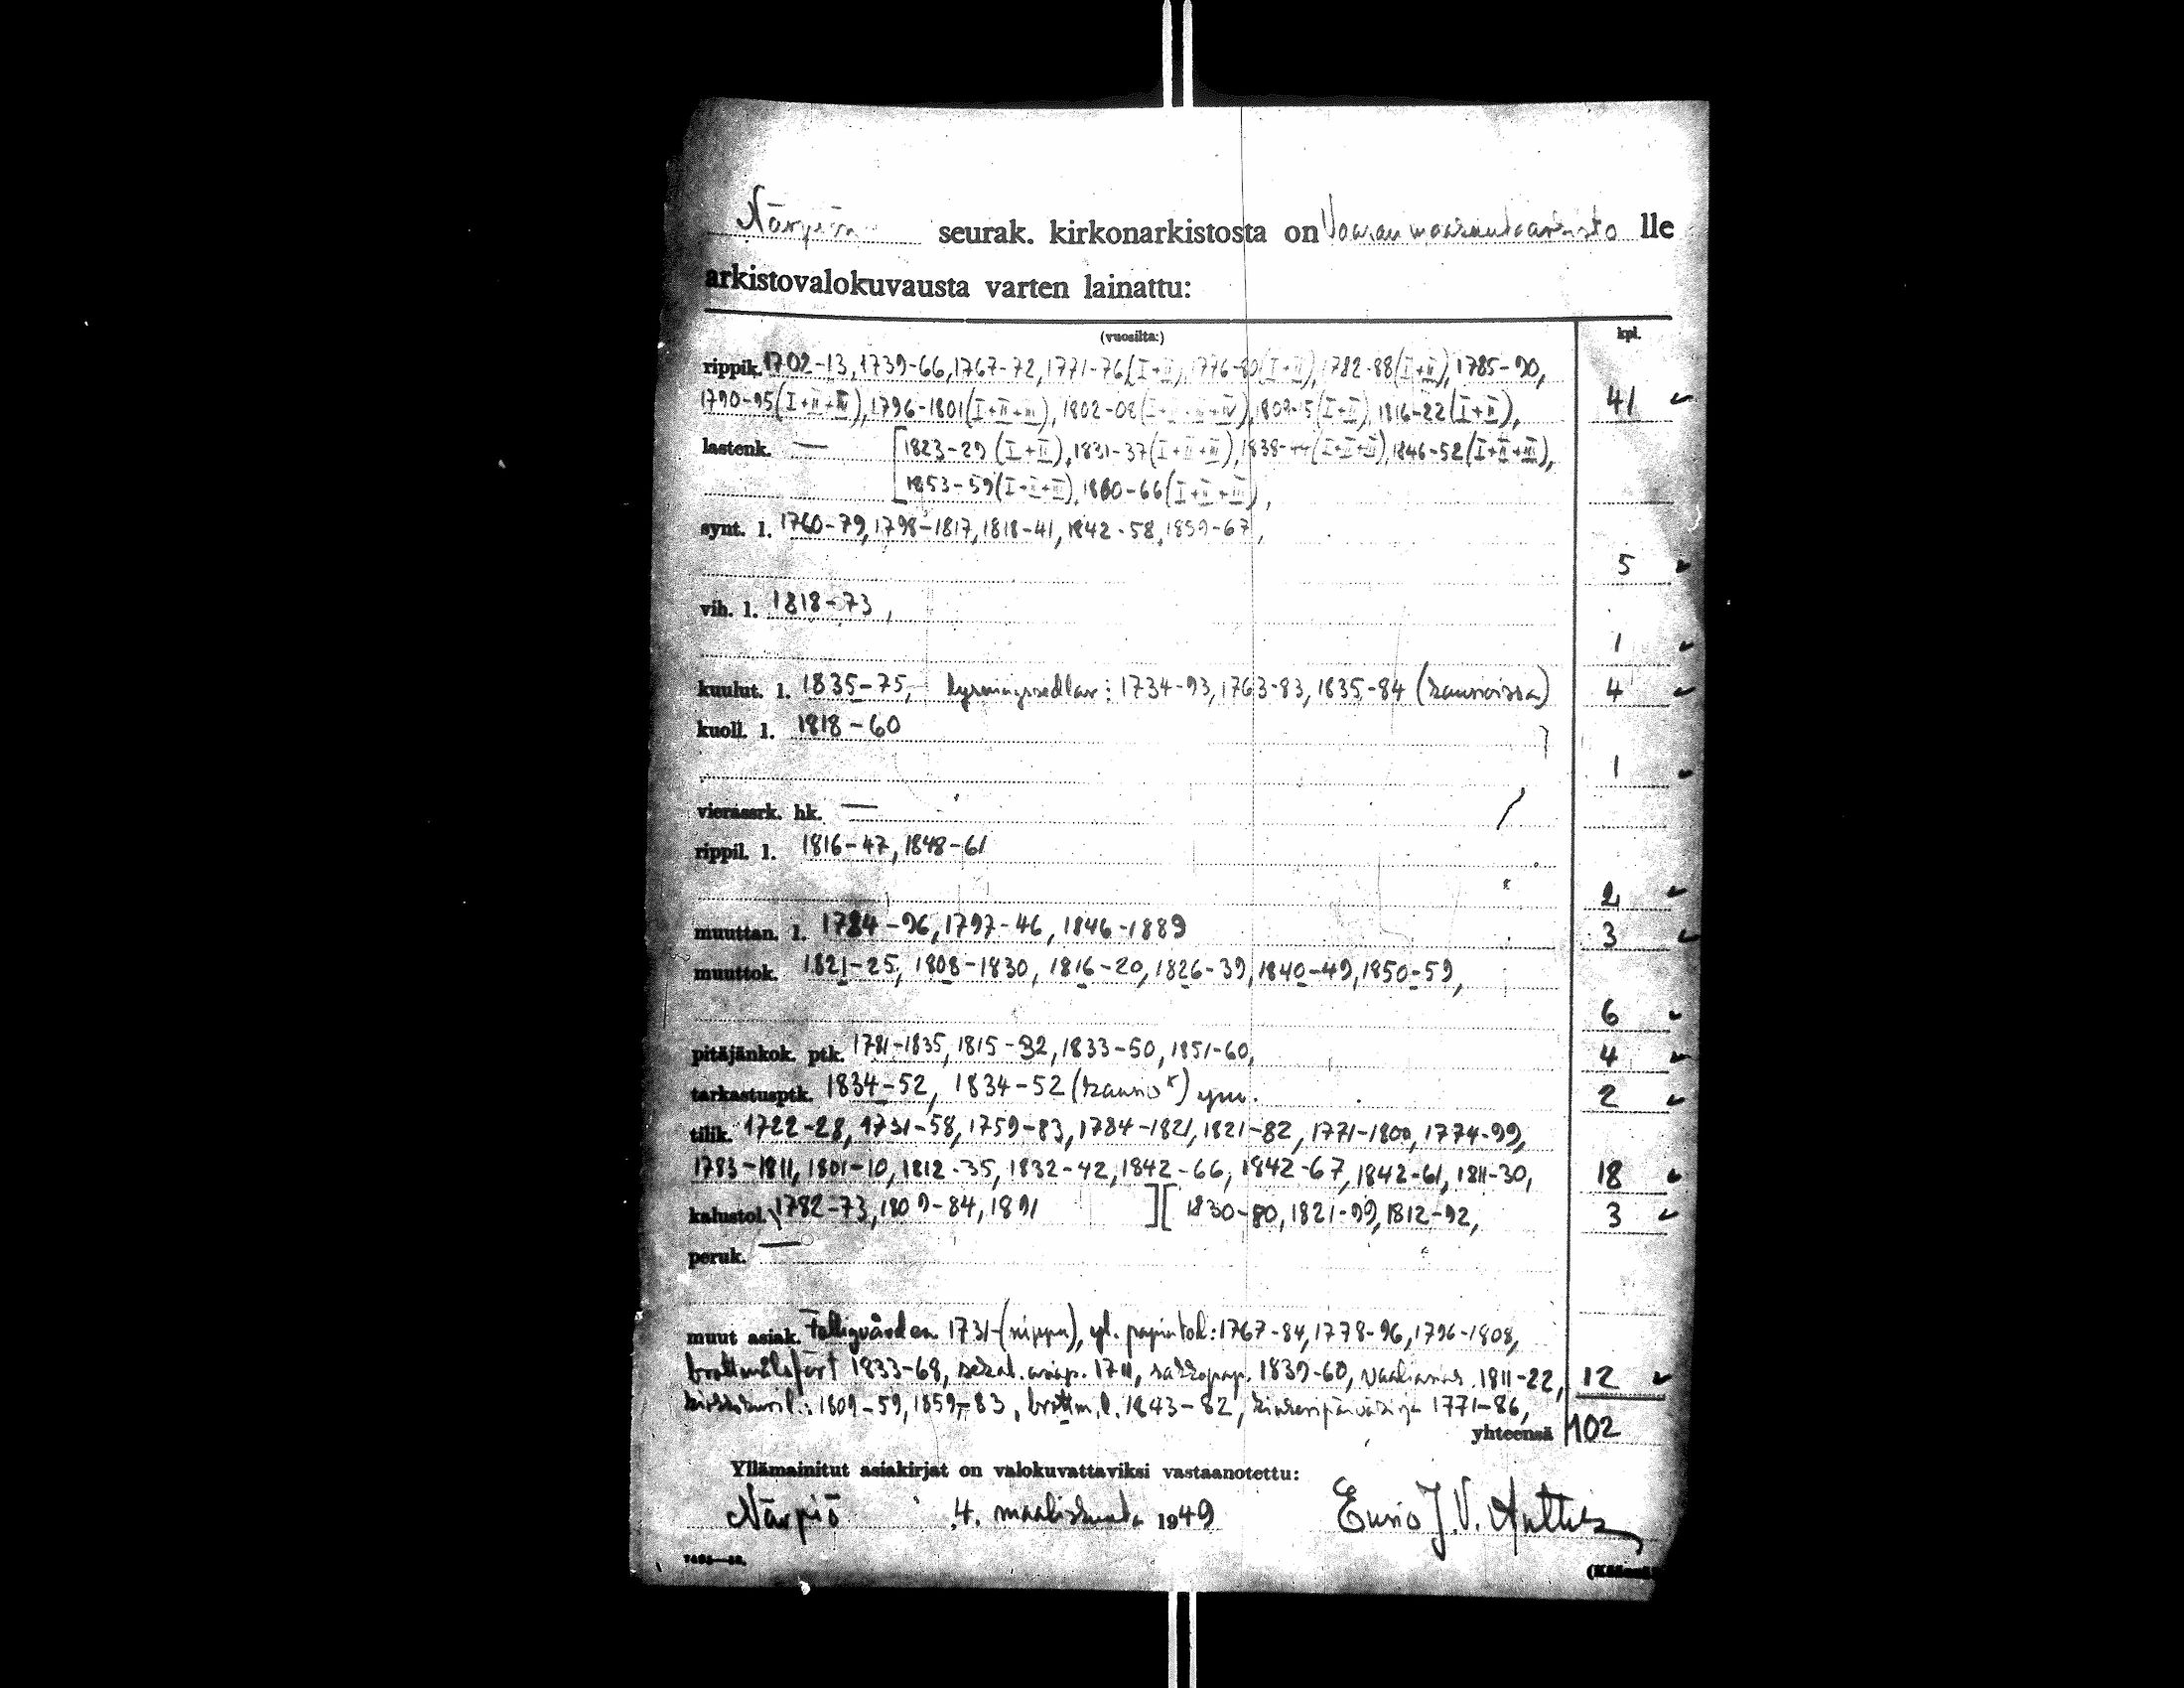 Närpiön seurak. kirkonarkistosta on Vaasan maakuntaarkisto lle
arkistovalokuvausta varten lainattu:
(vuosilta:) kpl.
rippik. 1702-13, 1739-66, 1767-72, 1771-76 (I+II), 1776-80 (I+II), 1782-88 (I+II), 1785-90,
1790-95 (I+II+III), 1796-1801 (I+II+III), 1802-08 (I+II+III+IV), 1809-15 (I+II), 1816-22 (I+II), 41
lastenk. — [1823-29 (I+II), 1831-37 (I+II+III), 1838-44 (I+II+III), 1846-52 (I+II+III),
[1853-59 (I+II+III), 1860-66 (I+II+III),
synt. l. 1760-79, 1798-1817, 1818-41, 1842-58, 1859-67,
5
vih. l. 1818-73,
1
kuulut. l. 1835-75, lysningssedlar: 1734-93, 1763-83, 1835-84 (kansioissa) 4
kuoll. l. 1818-60
1
vierassrk. hk. —
rippil. l. 1816-47, 1848-61
2
muuttan. l. 1784-96, 1797-46, 1846-1889 3
muuttok. 1821-25, 1808-1830, 1816-20, 1826-39, 1840-49, 1850-59,
6
pitäjänkok. ptk. 1781-1835, 1815-32, 1833-50, 1851-60, 4
tarkastusptk. 1834-52, 1834-52 (kansio) ym. 2
tilik. 1722-28, 1731-58, 1759-83, 1784-1821, 1821-82, 1771-1800, 1774-99,
1783-1811, 1801-10, 1812-35, 1832-42, 1842-66, 1842-67, 1842-61, 1811-30, 18
kalustol. 1782-73, 1809-84, 1891 ][ 1830-80, 1821-99, 1812-92, 3
peruk. —
muut asiak. Fattigvården 1731- (nippu), yl. 1767-84, 1778-96, 1796-1808,
brottmålsfört 1833-68, sekal. asiap. 1711, sakkopap. 1839-60, 1811-22, 12
1809-59, 1859-83, brottm. l. 1843-82, 1771-86,
yhteensä 102
Yllämainitut asiakirjat on valokuvattaviksi vastaanotettu:
Närpiö 4. maaliskuuta 1949 J. V.